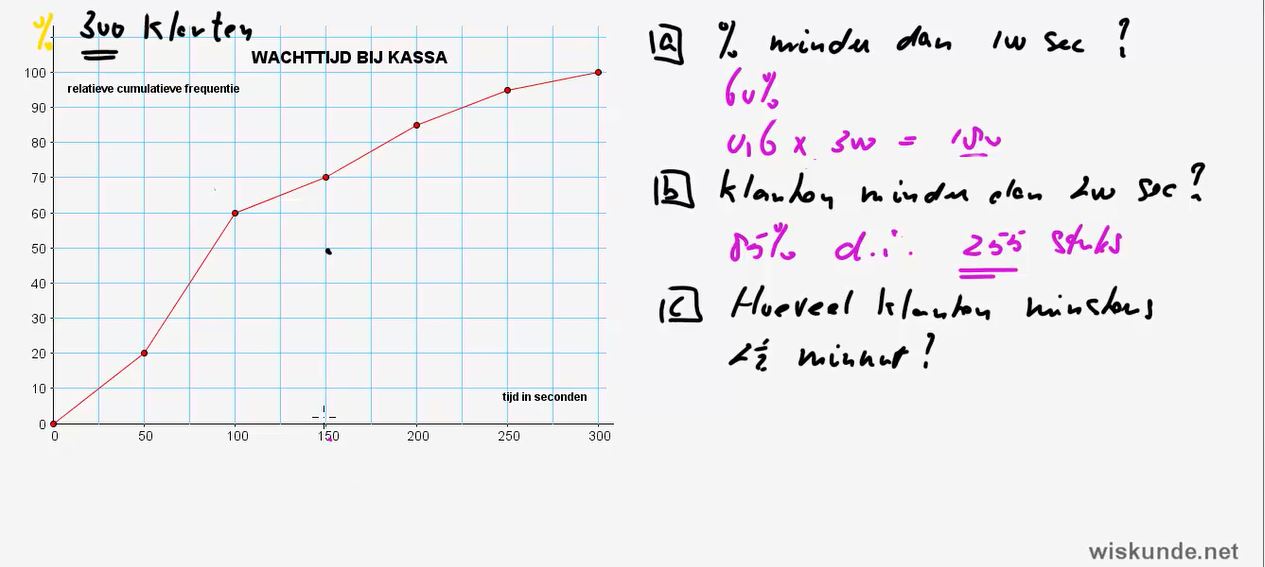 % 300 klanten
WACHTTIJD BIJ KASSA
relatieve cumulatieve frequentie
100
90
80
70
60
50
40
30
20
10
0
tijd in seconden
0 50 100 150 200 250 300
a % minder dan 100 sec ?
60%
0,6 x 300 = 180
b klanten minder dan 200 sec?
85% d.i. 255 stuks
c Hoeveel klanten minstens
2½ minuut?
wiskunde.net